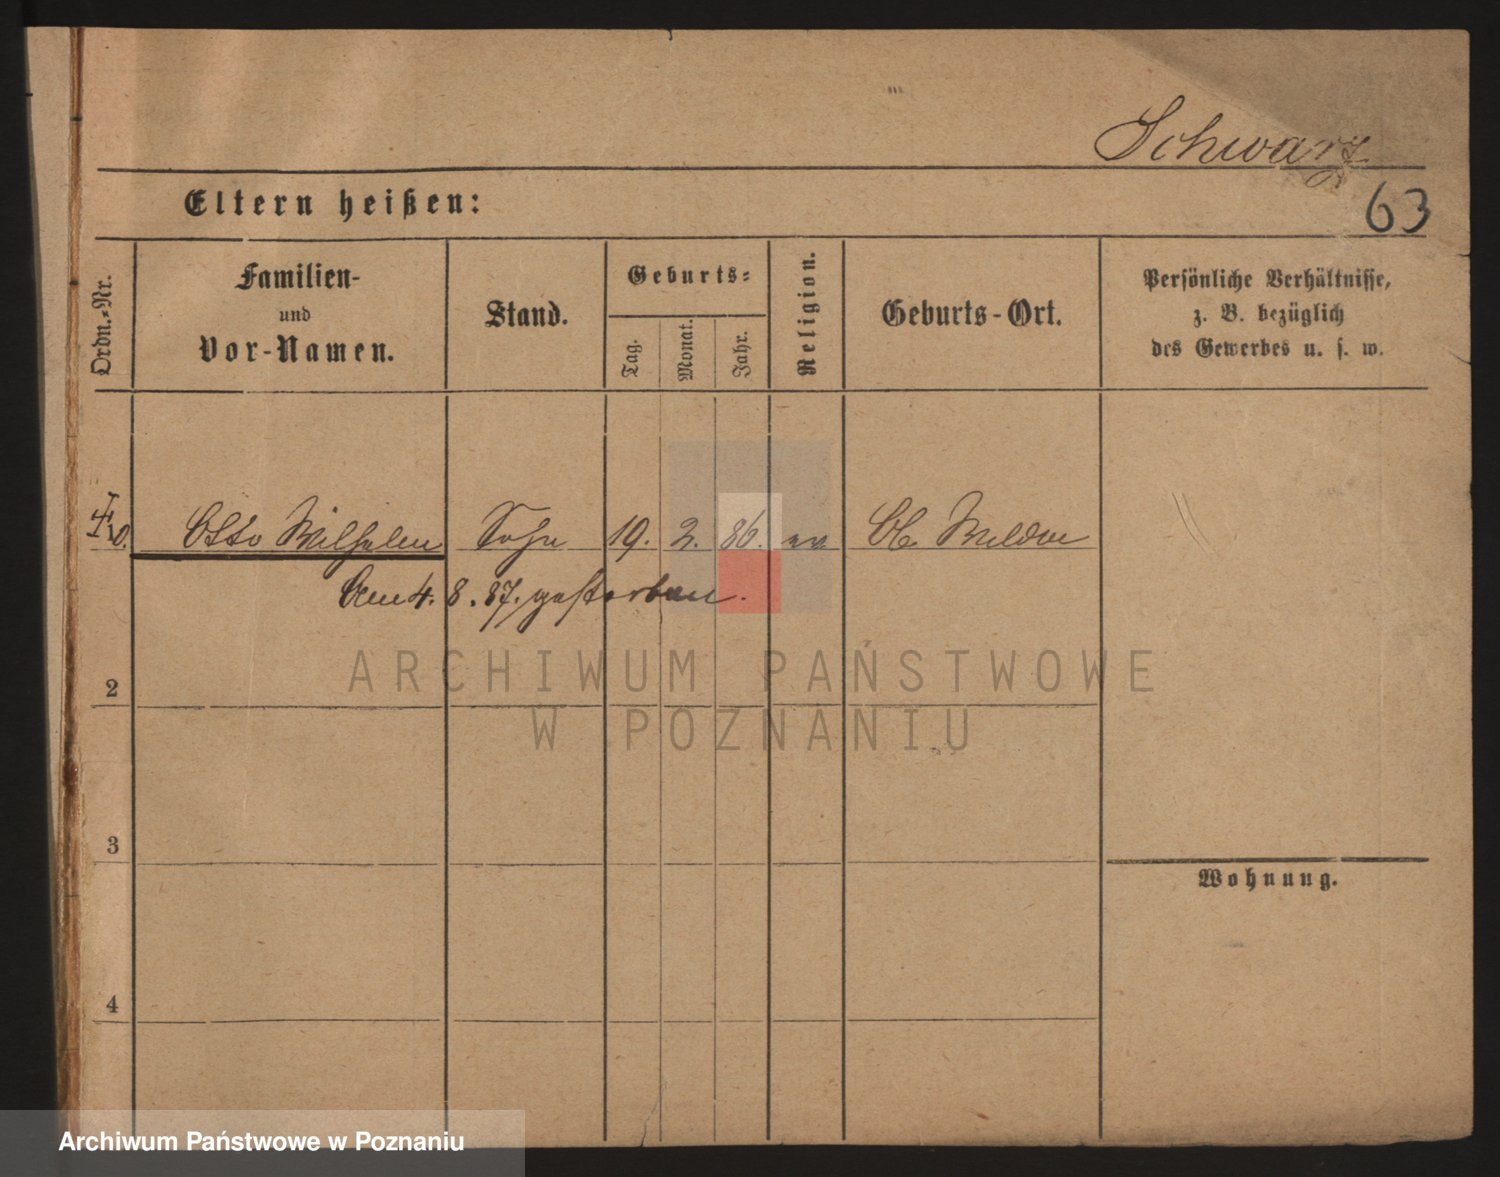 Schwarz
63
Eltern heißen:
Ordn.-Nr.
Familien-
und
Vor-Namen.
Stand.
Geburts-
Tag.
Monat.
Jahr.
Religion.
Geburts-Ort.
Persönliche Verhältnisse,
z. B. bezüglich
des Gewerbes u. s. w.
10. Otto Wilhelm Sohn 19. 2. 86. ev Ob. Wilda
Am 4. 8. 87. gestorben.
2
3
4
Wohnung.
ARCHIWUM PAŃSTWOWE
W POZNANIU
Archiwum Państwowe w Poznaniu